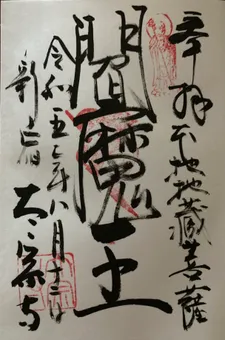 奉拝 本地地蔵菩薩
閻魔王
令和五年八月十三日
新宿 太宗寺